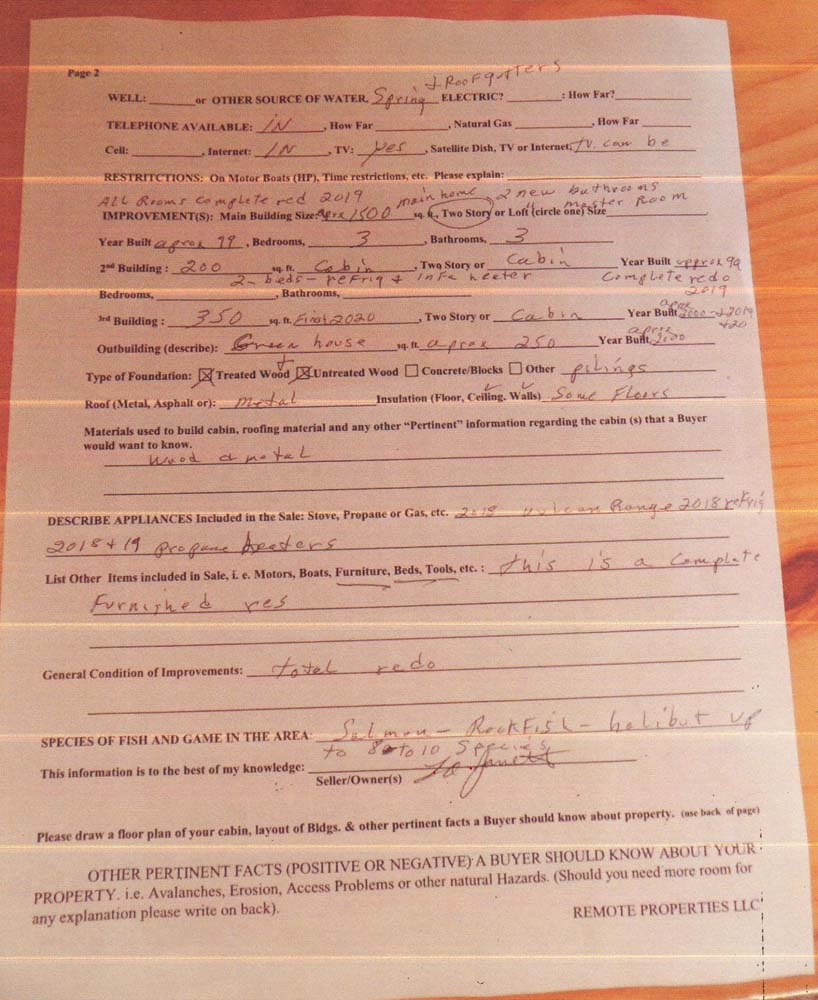 Page 2
+ Roof gutters
WELL: ______ or OTHER SOURCE OF WATER, Spring ELECTRIC? ______ : How Far? ______
TELEPHONE AVAILABLE: IN , How Far ______ , Natural Gas ______ , How Far ______
Cell: ______ , Internet: IN , TV: yes , Satellite Dish, TV or Internet, TV. can be
RESTRITCTIONS: On Motor Boats (HP), Time restrictions, etc. Please explain: ______
ALL Rooms complete red 2019 main home 2 new bathrooms
IMPROVEMENT(S): Main Building Size: Aprx 1500 sq. ft., Two Story or Loft (circle one) Size " master Room
Year Built aprox 99 , Bedrooms, 3 , Bathrooms, 3
2nd Building : 200 sq. ft. Cabin , Two Story or Cabin Year Built approx 99
2- beds - refrig + heater Complete redo
Bedrooms, ______ , Bathrooms, ______ 2019
3rd Building : 350 sq. ft. Final 2020 , Two Story or Cabin Year Built aprx 2000 - + 2019 +20
Outbuilding (describe): Green house sq. ft. aprox 250 Year Built, aprox 2020
Type of Foundation: ☒ Treated Wood + ☒ Untreated Wood ☐ Concrete/Blocks ☐ Other pilings
Roof (Metal, Asphalt or): metal Insulation (Floor, Ceiling, Walls) Some Floors
Materials used to build cabin, roofing material and any other “Pertinent” information regarding the cabin (s) that a Buyer
would want to know.
Wood & metal
DESCRIBE APPLIANCES Included in the Sale: Stove, Propane or Gas, etc. 2018 Vulcan Range 2018 refrig
2018 + 19 propane heaters
List Other Items included in Sale, i. e. Motors, Boats, Furniture, Beds, Tools, etc. : this is a Complete
Furnished res
General Condition of Improvements: total redo
SPECIES OF FISH AND GAME IN THE AREA: Salmon - RockFish - halibut up
to 8 to 10 Species
This information is to the best of my knowledge: ______
Seller/Owner(s)
Please draw a floor plan of your cabin, layout of Bldgs. & other pertinent facts a Buyer should know about property. (use back of page)
OTHER PERTINENT FACTS (POSITIVE OR NEGATIVE) A BUYER SHOULD KNOW ABOUT YOUR
PROPERTY. i.e. Avalanches, Erosion, Access Problems or other natural Hazards. (Should you need more room for
any explanation please write on back).
REMOTE PROPERTIES LLC